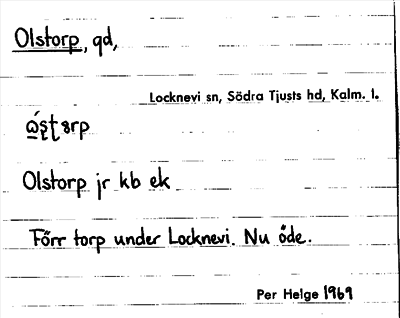 Olstorp, gd,
Locknevi sn, Södra Tjusts hd, Kalm. l.
Olstorp jr kb ek
Förr torp under Locknevi. Nu öde.
Per Helge 1969